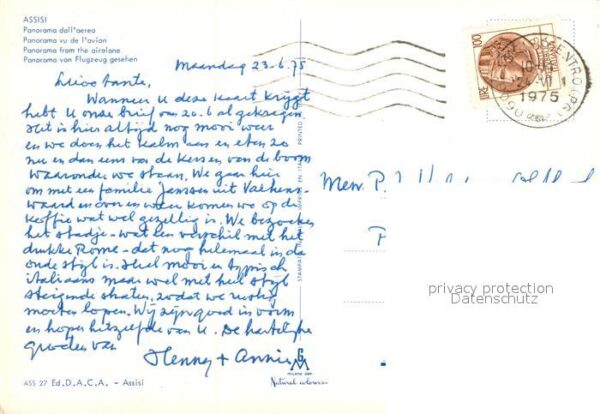 ASSISI
Panorama dall'aereo
Panorama vu de l'avion
Panorama from the airelane
Panorama von Flugzeug gesehen
Maandag 23-6-75
Lieve tante,
Wanneer U deze kaart krijgt
hebt U onze brief van 20.6 al gekregen.
Het is hier altijd nog mooi weer
en we doen het kalm aan en eten zo
nu en dan eens van de kersen van de boom
waaronder we staan. We gaan hier
om met een familie Janssen uit Valkens-
waard en over en weer komen we op de
koffie wat wel gezellig is. We bezoeken
het stadje - wat een verschil met het
drukke Rome - dat nog helemaal in de
oude stijl is. Heel mooi en typisch
italiaans maar wel met heel stijl
steigende straten, zodat we rustig
moeten lopen. Wij zijn goed in vorm
en hopen hetzelfde van U. De hartelijke
groeten van
Henny + Annie
ASS 27 Ed. D.A.C.A. - Assisi
Natural colours
100
LIRE
1975
Mew. P.
privacy protection
Datenschutz